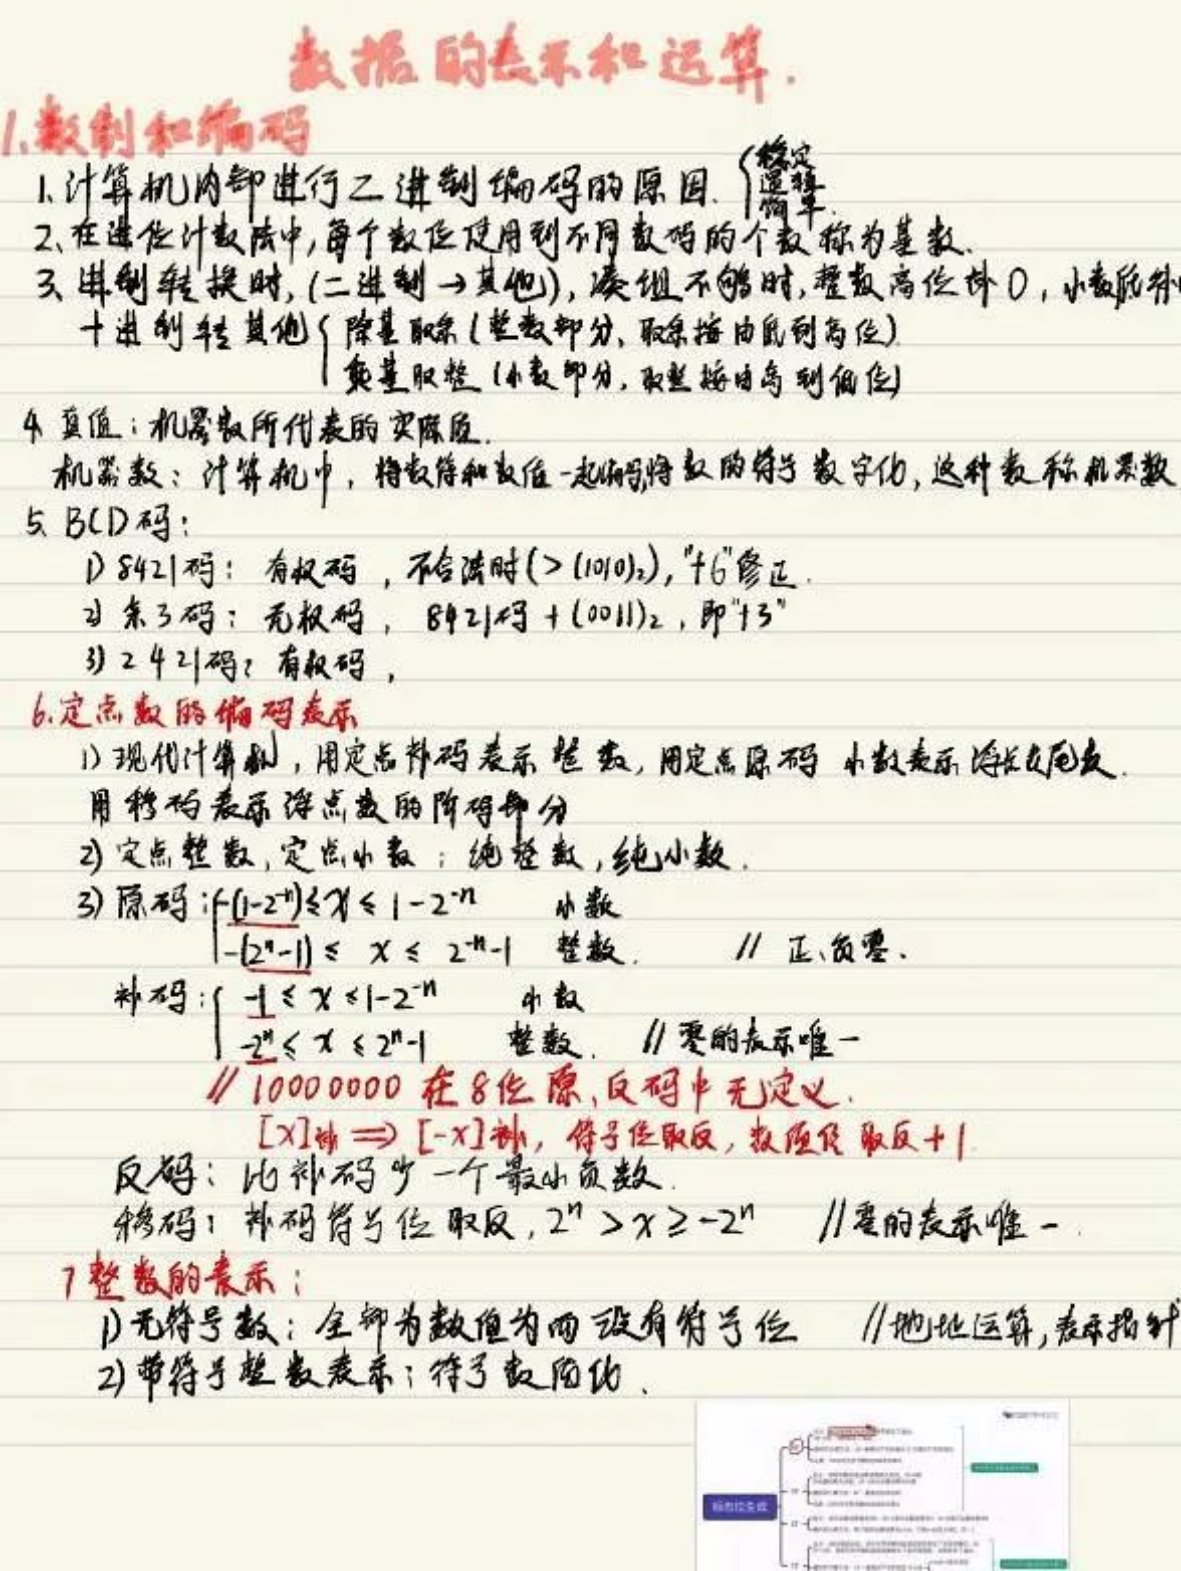 数据的表示和运算.
1.数制和编码
1.计算机内部进行二进制编码的原因. { 稳定
逻辑
简单.
2、在进位计数法中,每个数位使用到不同数码的个数称为基数.
3、进制转换时,(二进制→其他),凑组不够时,整数高位补0,小数低补
十进制转其他 { 除基取余(整数部分,取余按由低到高位)
乘基取整(小数部分,取整按由高到低位)
4、真值:机器数所代表的实际值.
机器数:计算机中,将数符和数值一起编码,将数的符号数字化,这种数称机器数
5、BCD码:
1) 8421码: 有权码 ,不合法时(>(1010)₂),"+6"修正.
2) 余3码: 无权码, 8421码+(0011)₂,即"+3"
3) 2421码: 有权码,
6.定点数的编码表示
1)现代计算机,用定点补码表示整数,用定点原码小数表示浮点数尾数.
用移码表示浮点数的阶码部分
2)定点整数,定点小数:纯整数,纯小数.
3)原码:{ -(1-2⁻ⁿ)≤x≤1-2⁻ⁿ 小数
-(2ⁿ-1)≤ x ≤ 2⁻ⁿ-1 整数. // 正、负零.
补码:{ -1≤x≤1-2⁻ⁿ 小数
-2ⁿ≤x≤2ⁿ-1 整数. //零的表示唯一
//10000000在8位原、反码中无定义.
[x]补⟹[-x]补,符号位取反,数值位取反+1
反码:比补码少一个最小负数.
移码:补码符号位取反,2ⁿ>x≥-2ⁿ //零的表示唯一.
7 整数的表示:
1)无符号数:全部为数值为而没有符号位 //地址运算,表示指针
2)带符号整数表示:符号数值化.
标志位生成